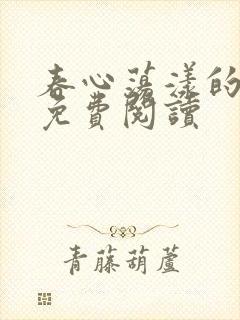 春心蕩漾的
免費閱讀
青藤葫蘆